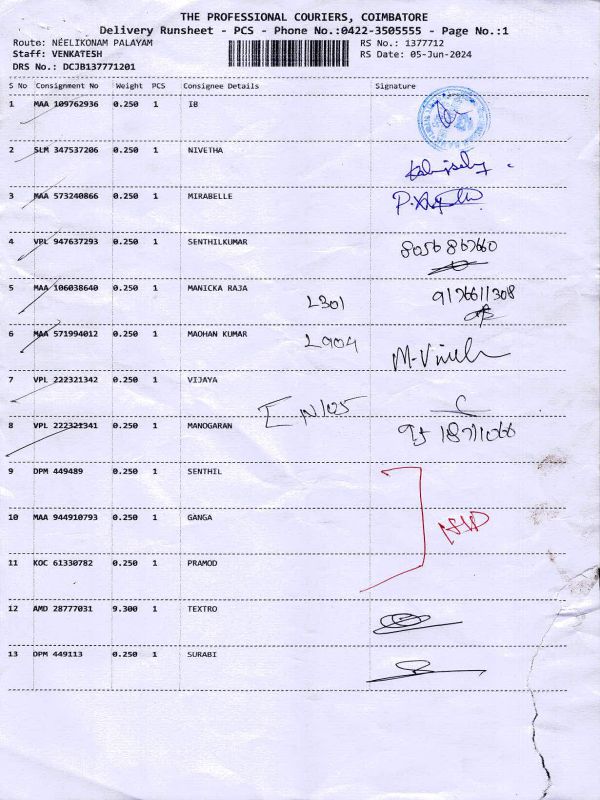 THE PROFESSIONAL COURIERS, COIMBATORE
Delivery Runsheet - PCS - Phone No.:0422-3505555 - Page No.:1
Route: NEELIKONAM PALAYAM RS No.: 1377712
Staff: VENKATESH RS Date: 05-Jun-2024
DRS No.: DCJB137771201
S No Consignment No Weight PCS Consignee Details Signature
1 MAA 109762936 0.250 1 I0
2 SLM 347537206 0.250 1 NIVETHA
3 MAA 573240866 0.250 1 MIRABELLE
4 VPL 947637293 0.250 1 SENTHILKUMAR 8056867660
5 MAA 106038640 0.250 1 MANICKA RAJA L301 9176611308
6 MAA 571994012 0.250 1 MAOHAN KUMAR L904
7 VPL 222321342 0.250 1 VIJAYA
8 VPL 222321341 0.250 1 MANOGARAN
9 DPM 449489 0.250 1 SENTHIL
10 MAA 944910793 0.250 1 GANGA
11 KOC 61330782 0.250 1 PRAMOD
12 AMD 28777031 9.300 1 TEXTRO
13 DPM 449113 0.250 1 SURABI